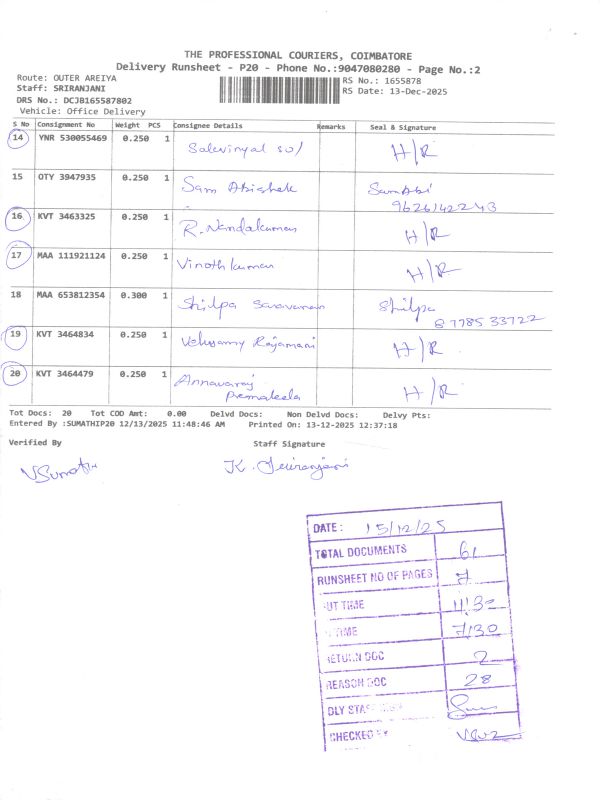 THE PROFESSIONAL COURIERS, COIMBATORE
Delivery Runsheet - P20 - Phone No.:9047080280 - Page No.:2
Route: OUTER AREIYA
RS No.: 1655878
Staff: SRIRANJANI
RS Date: 13-Dec-2025
DRS No.: DCJB165587802
Vehicle: Office Delivery
S No Consignment No Weight PCS Consignee Details Remarks Seal & Signature
14 YNR 530055469 0.250 1 H/R
15 OTY 3947935 0.250 1 Sam Abishek Sam Abi
9626142243
16 KVT 3463325 0.250 1 R. Nandakumar H/R
17 MAA 111921124 0.250 1 Vinoth kumar H/R
18 MAA 653812354 0.300 1 Shilpa Saravanan Shilpa
87785 33722
19 KVT 3464834 0.250 1 Velusamy Rajamani H/R
20 KVT 3464479 0.250 1 H/R
Tot Docs: 20 Tot COD Amt: 0.00 Delvd Docs: Non Delvd Docs: Delvy Pts:
Entered By :SUMATHIP20 12/13/2025 11:48:46 AM Printed On: 13-12-2025 12:37:18
Verified By Staff Signature
DATE: 15/12/25
TOTAL DOCUMENTS 61
RUNSHEET NO OF PAGES 7
UT TIME 11:30
TIME 7:30
RETURN DOC 2
REASON DOC 28
DLY STAFF
CHECKED BY